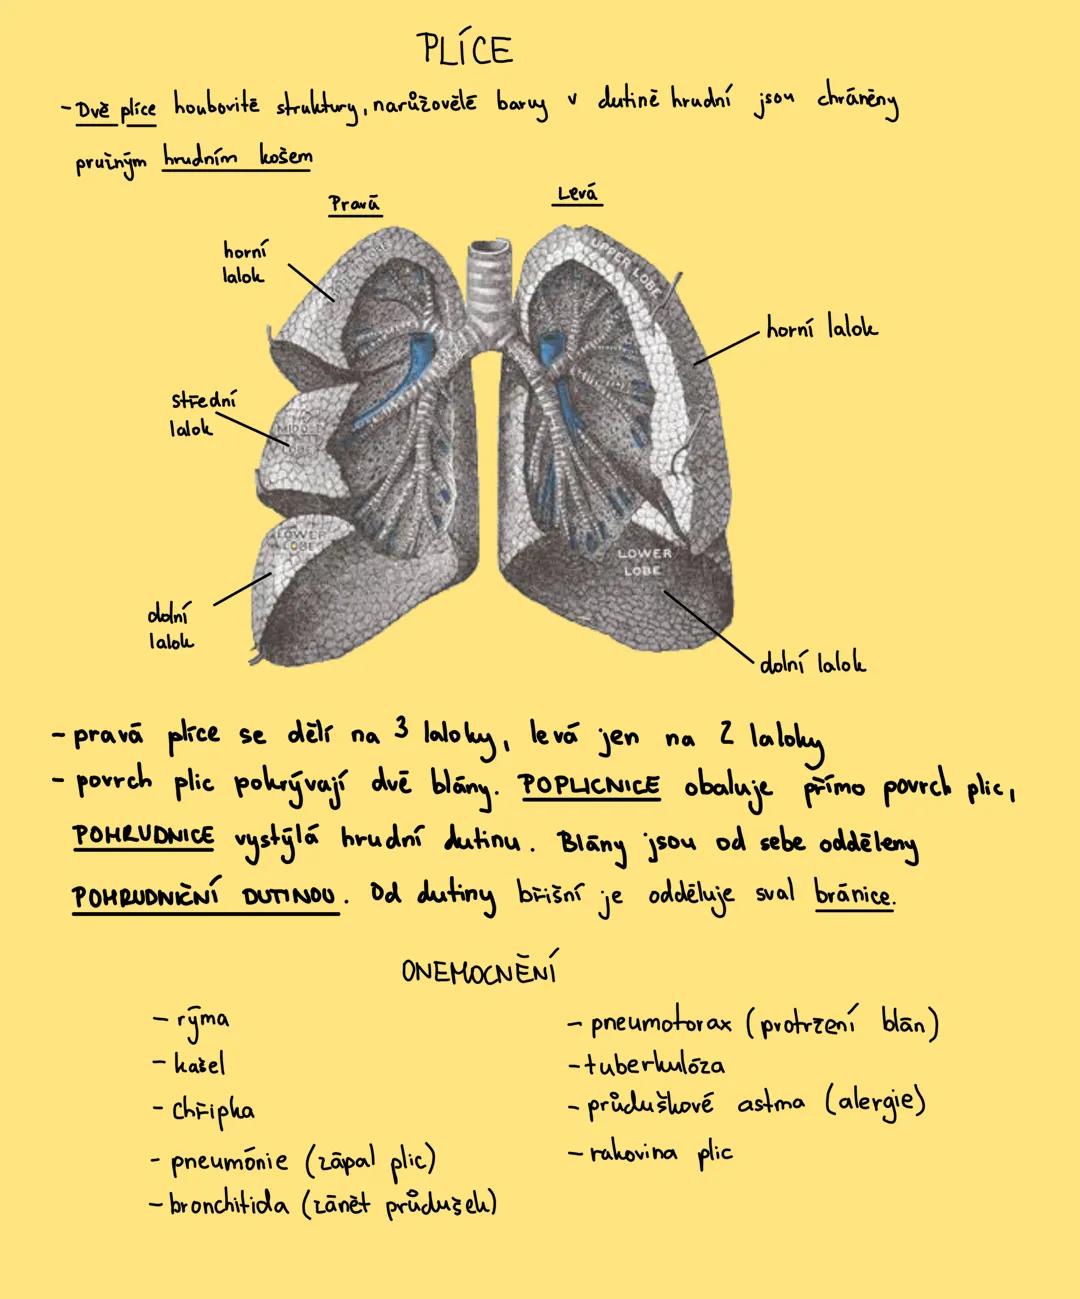 PLÍCE
- Dvě plíce houbovité struktury, narůžovělé barvy v dutině hrudní jsou chráněny
pružným hrudním košem
Pravá
Levá
horní
lalok
UPPER LOBE
horní lalok
střední
lalok
MIDDLE
LOBE
LOWER
LOBE
LOWER
LOBE
dolní
lalok
dolní lalok
- pravá plíce se dělí na 3 laloky, levá jen na 2 laloky
- povrch plic pokrývají dvě blány. POPLICNICE obaluje přímo povrch plic,
POHRUDNICE vystýlá hrudní dutinu. Blány jsou od sebe odděleny
POHRUDNIČNÍ DUTINOU. Od dutiny břišní je odděluje sval bránice.
ONEMOCNĚNÍ
- rýma
- kašel
- chřipka
- pneumónie (zápal plic)
- bronchitida (zánět průdušek)
- pneumotorax (protržení blán)
- tuberkulóza
- průduškové astma (alergie)
- rakovina plic